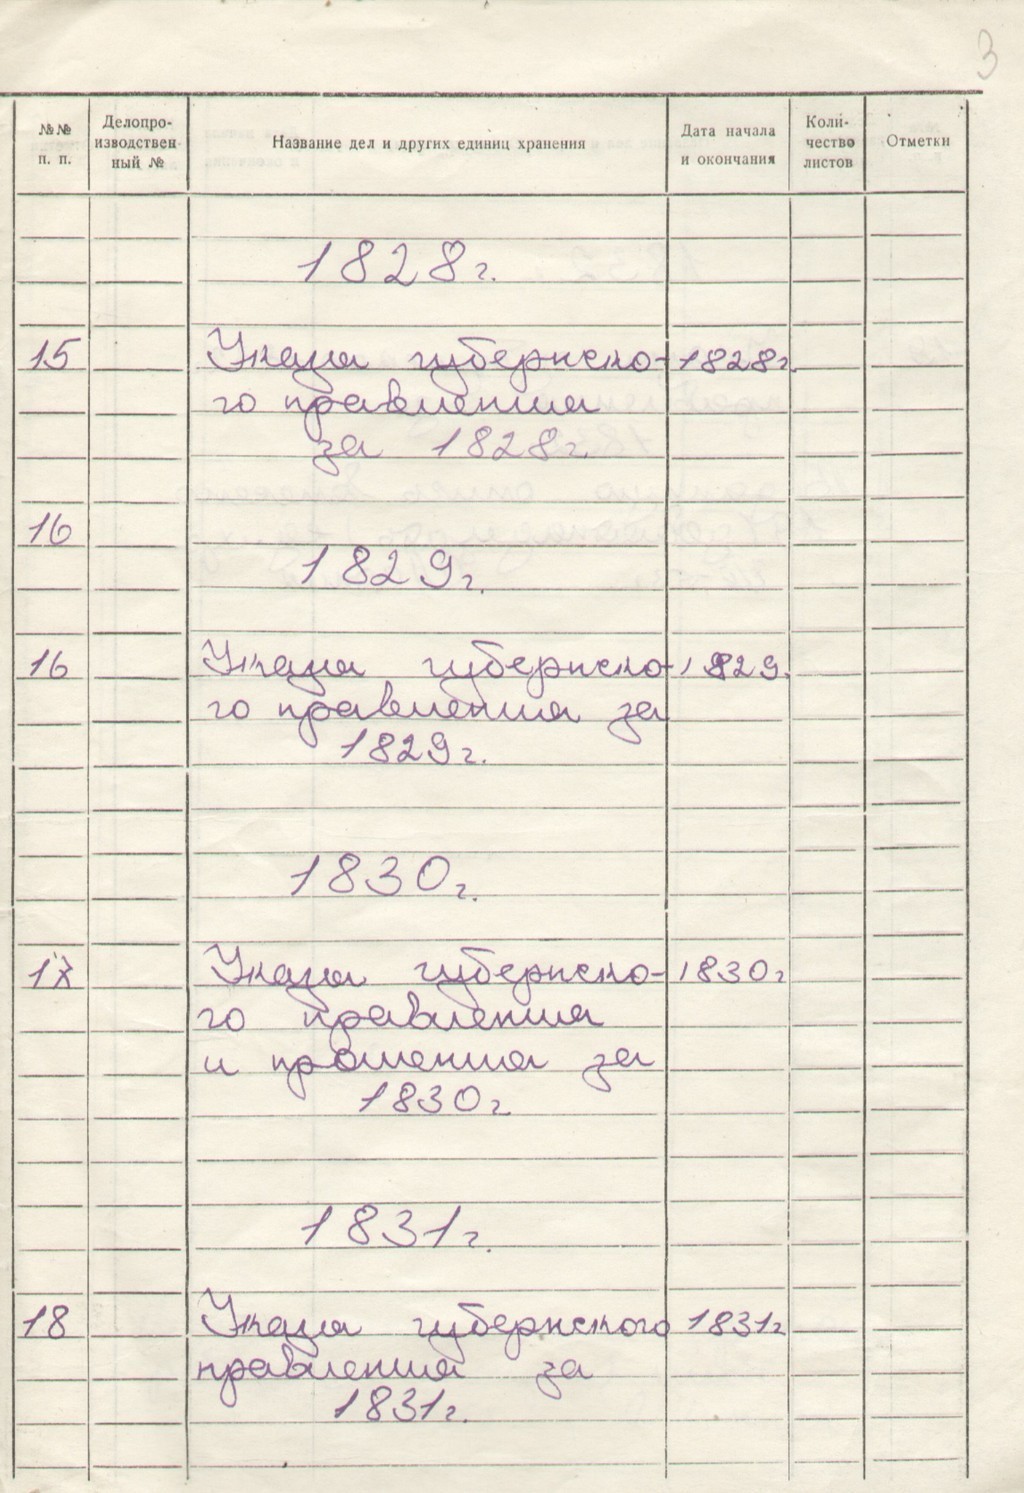 3
№№ п. п.
Делопро-
изводствен-
ный №
Название дел и других единиц хранения
Дата начала
и окончания
Коли-
чество
листов
Отметки
1828г.
15 Указы губернско- 1828г.
го правления
за 1828г.
16
1829г.
16 Указы губернско- 1829.
го правления за
1829г.
1830г.
17 Указы губернско- 1830г
го правления
и прошения за
1830г
1831г.
18 Указы губернского 1831г
правления за
1831г.